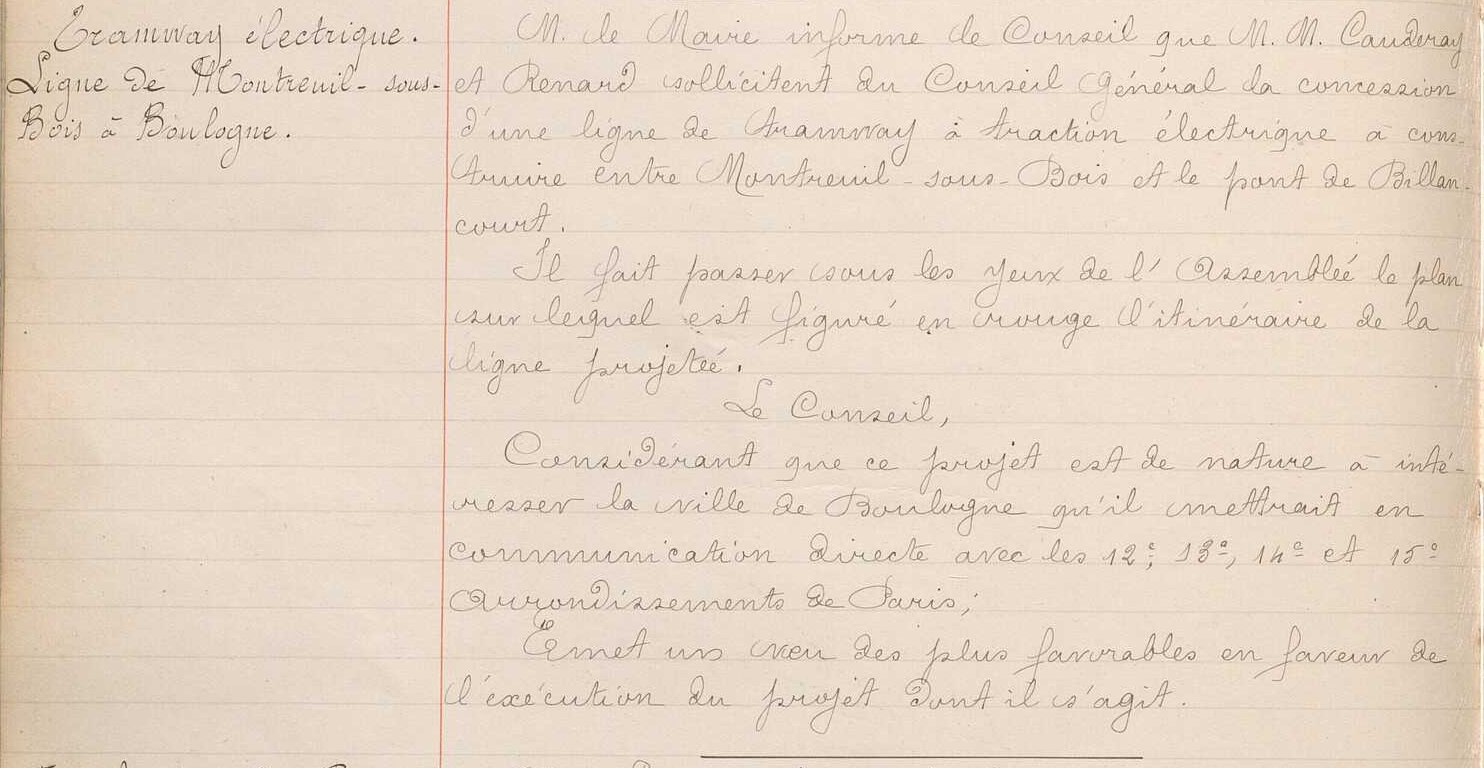 Tramway électrique.
Ligne de Montreuil-sous-
Bois à Boulogne.
M. le Maire informe le Conseil que M. M. Cauderay
et Renard sollicitent du Conseil Général la concession
d'une ligne de tramway à traction électrique à cons-
truire entre Montreuil-sous-Bois et le pont de Billan-
court.
Il fait passer sous les yeux de l'Assemblée le plan
sur lequel est figuré en rouge l'itinéraire de la
ligne projetée.
Le Conseil,
Considérant que ce projet est de nature à inté-
resser la ville de Boulogne qu'il mettrait en
communication directe avec les 12e, 13e, 14e et 15e
arrondissements de Paris;
Emet un vœu des plus favorables en faveur de
l'exécution du projet dont il s'agit.